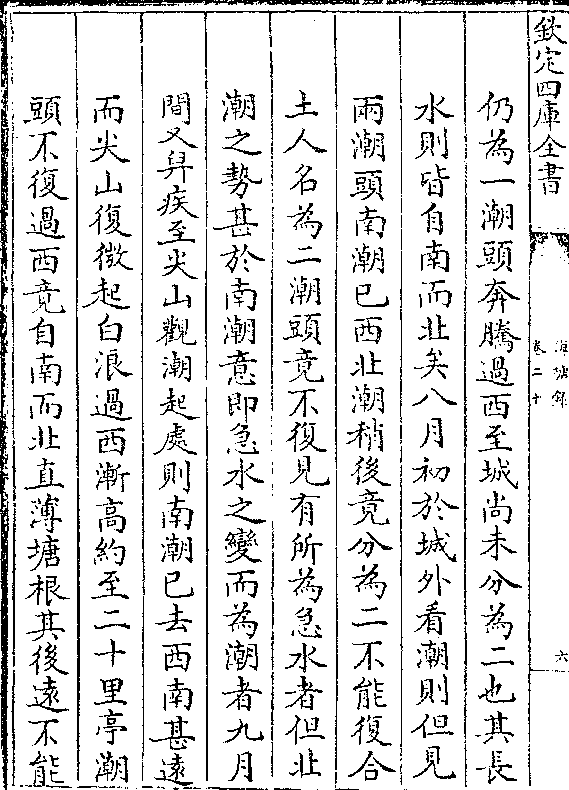 欽定四庫全書
海塘錄
卷二十
六
仍為一潮頭奔騰過西至城尚未分為二也其長
水則皆自南而北矣八月初於城外看潮則但見
兩潮頭南潮已西北潮稍後竟分為二不能復合
土人名為二潮頭竟不復見有所為急水者但北
潮之勢甚於南潮意即急水之變而為潮者九月
間又舁疾至尖山觀潮起處則南潮已去西南甚遠
而尖山復微起白浪過西漸高約至二十里亭潮
頭不復過西竟自南而北直薄塘根其後遠不能